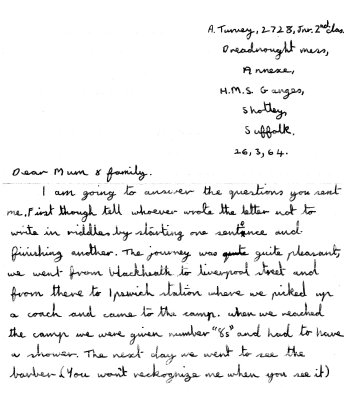 A. Turvey, 2728, Jnr. 2nd clas.
Dreadnought mess,
Annexe,
H.M.S Ganges,
Shotley,
Suffolk.
26, 3, 64.
Dear Mum & family.
I am going to answer the questions you sent
me, First though tell whoever wrote the letter not to
write in riddles by starting one sentence and
finishing another. The journey was quite quite pleasant,
we went from blackheath to liverpool street and
from there to Ipswich station where we picked up
a coach and came to the camp. when we reached
the camp we were given number "88" and had to have
a shower. The next day we went to see the
barber & (You won't reckognize me when you see it)